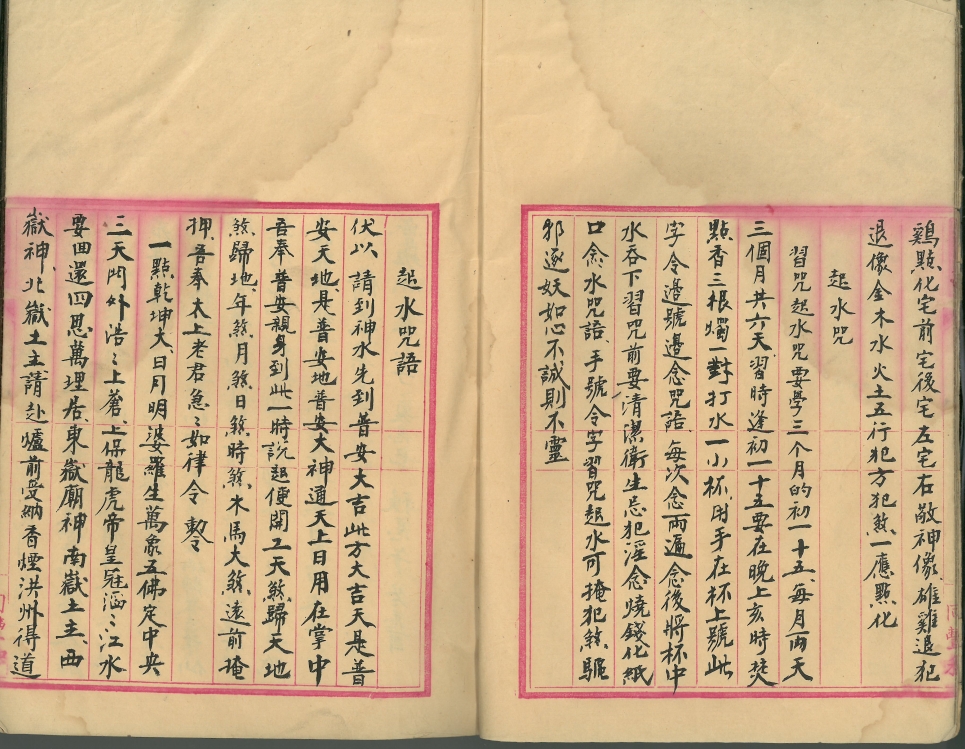 鷄點化宅前宅後宅左宅右敬神像、雄雞退犯
退像金木水火土五行犯方犯煞一應點化
起水咒
習咒起水咒要學三个月的初一十五、每月兩天
三個月共六天、習時逢初一十五要在晚上亥時焚
點香三根燭一對打水一小杯、用手在杯上號此
字令邊號邊念咒語、每次念兩遍念後將杯中
水吞下習咒前要清潔衛生忌犯淫念燒錢化紙
口念水咒語、手號令字習咒起水可掩犯煞驅
邪逐妖如心不誠則不靈
起水咒語
伏以 請到神水先到普安大吉此方大吉天是普
安天地是普安地普安大神通天上日用在掌中
吾奉普安親身到此一時說起便開工天煞歸天地
煞歸地、年煞月煞日煞時煞、木馬大煞遠前掩
押、吾奉太上老君急〻如律令 勅令
一點乾坤大、日月明 婆羅生萬象五佛定中央
三天門外浩〻上蒼、上保龍虎帝皇冠滔〻江水
要回還四恩萬理居、東嶽廟神南嶽土主、西
嶽神、北嶽土主請赴爐前受納香煙洪州得道